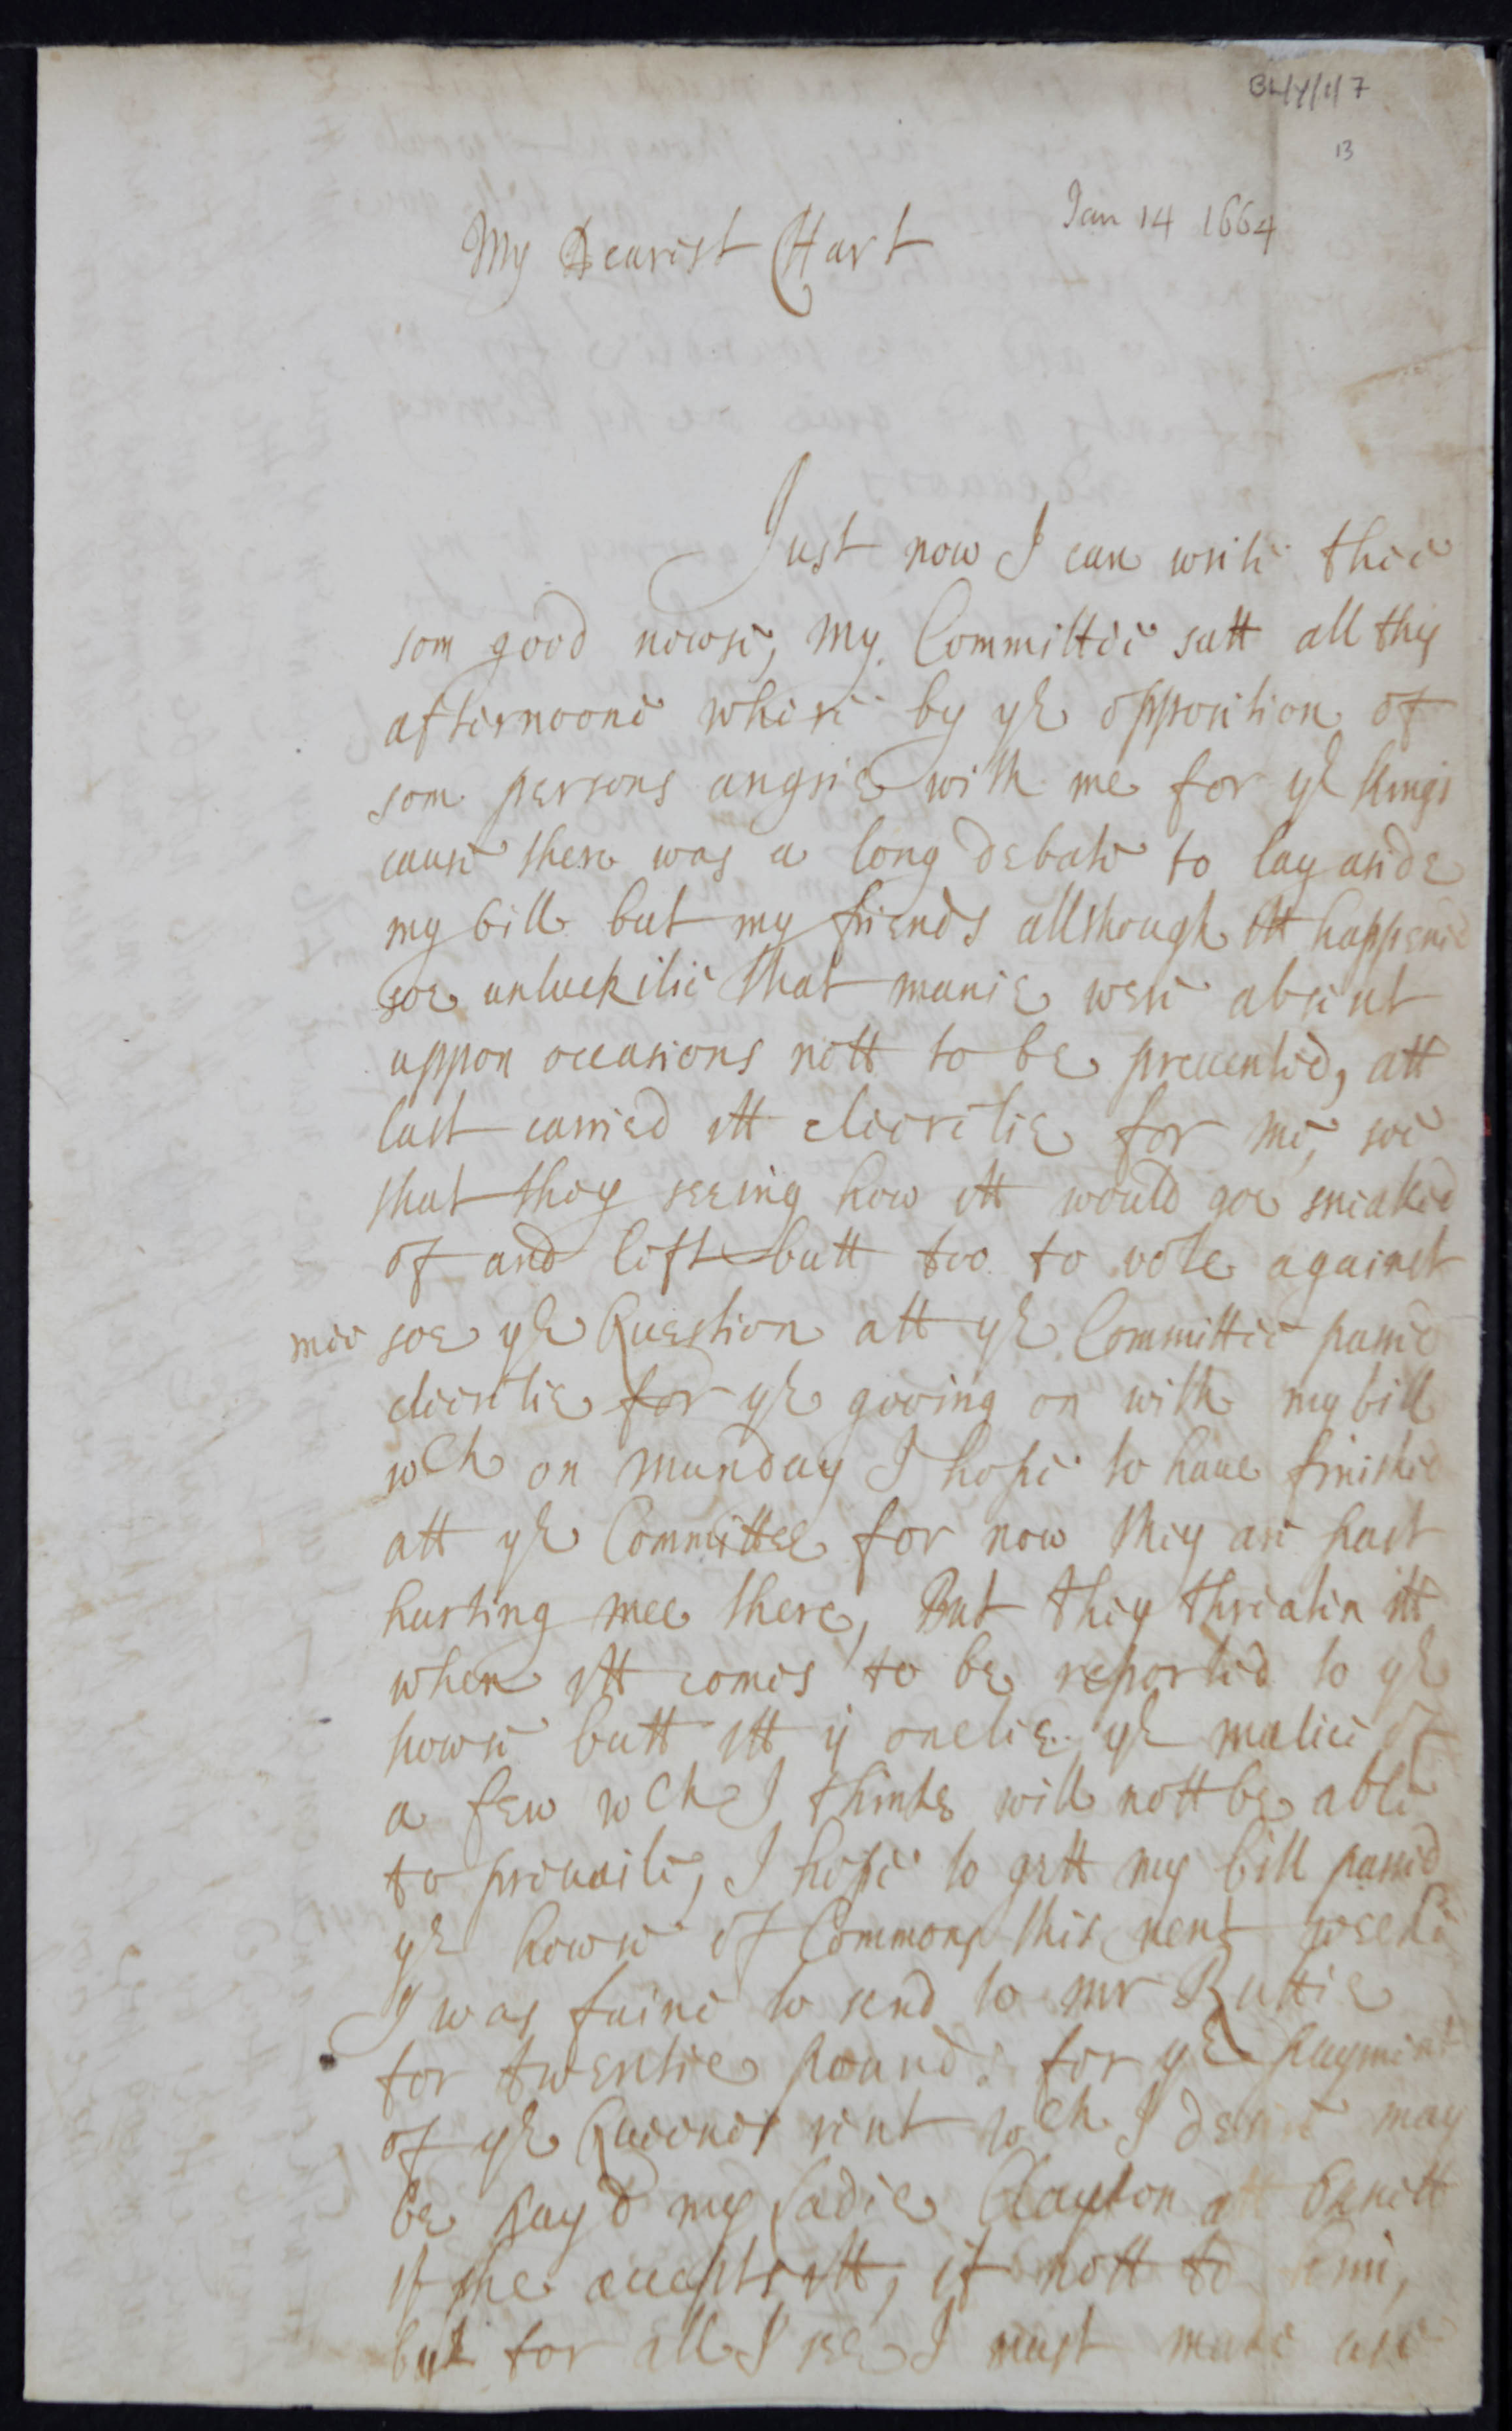 BL/Y/1/7
13
Jan 14 1664
My Dearest Hart
Just now I can write thee
som good newse, my Committee satt all this
afternoone where by ye opposition of
som persons angrie with me for ye Kings
cause there was a long debate to lay aside
my bill but my friends allthough itt happened
soe unluckilie that manie were absent
uppon occasions nott to be preuented, att
last carried itt cleerelie for me, soe
that they seeing how itt would goe sneaked
of and left butt too to vote against
mee soe ye Question att ye Committee passed
cleerelie for ye gooing on with my bill
wch on munday I hope to haue finished
att ye Committee for now they are past
hurting mee there, But they threaten itt
when itt comes to be reported to ye
howse butt itt is onelie ye malice of
a few wch I thinke will nott be able
to preuaile, I hope to gett my bill passed
ye howse of Commons this next weeke
I was faine to send to mr Buttie
for twentie pounds for ye payment
of ye Queenes rent wch I desire may
be pay'd my Ladie Clayton att
if she accepts itt, if nott to
but for all I see I must make use